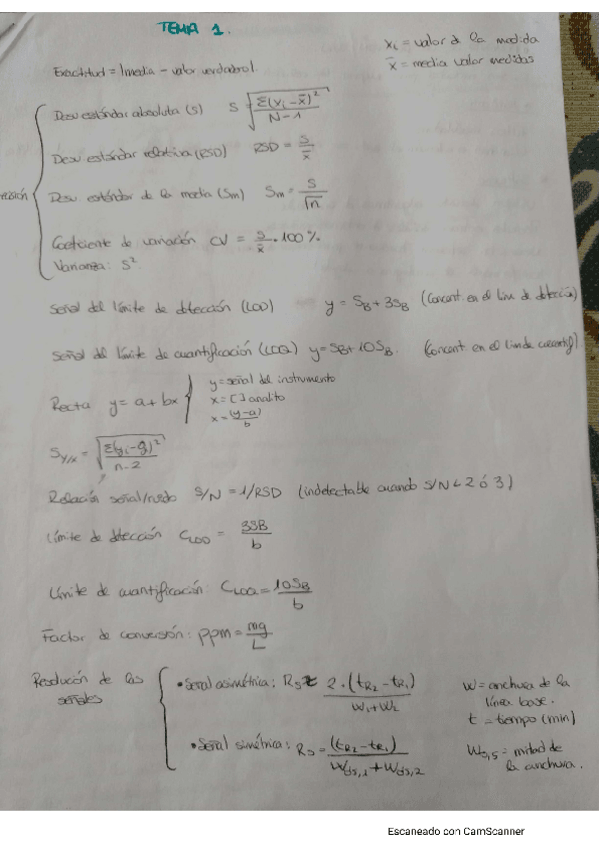 TEMA 1.
xi = valor d la medida
x̄ = media valor medidas
Exactitud = |media - valor verdadero|.
Desv estándar absoluta (s) S √(Σ(xi - x̄)² / N-1)
Desv estándar relativa (RSD) RSD = s/x̄
Desv estándar de la media (Sm) Sm = s/√n
Coeficiente de variación CV = s/x̄ · 100 %
Varianza: s²
Señal del límite de detección (LOD) y = SB + 3SB (Concent. en el lim. de detección)
Señal del límite de cuantificación (LOQ) y = SB + 10SB. (Concent en el lim de cuantif)
Recta y = a + bx
y = señal del instrumento
x = [ ] analito
x = (y-a)/b
Sy/x = √(Σ(yi - ŷ)² / n-2)
Relación señal/ruido S/N = 1/RSD (indetectable cuando S/N < 2 ó 3)
Límite de detección CLOD = 3SB/b
Límite de cuantificación: CLOQ = 10SB/b
Factor de conversión: ppm = mg/L
Resolución de las señales
• Señal asimétrica: Rs = 2·(tR2 - tR1) / W1 + W2
• Señal simétrica: Rs = (tR2 - tR1) / W0,5,1 + W0,5,2
W = anchura de la línea base.
t = tiempo (min)
W0,5 = mitad de la anchura.
Escaneado con CamScanner